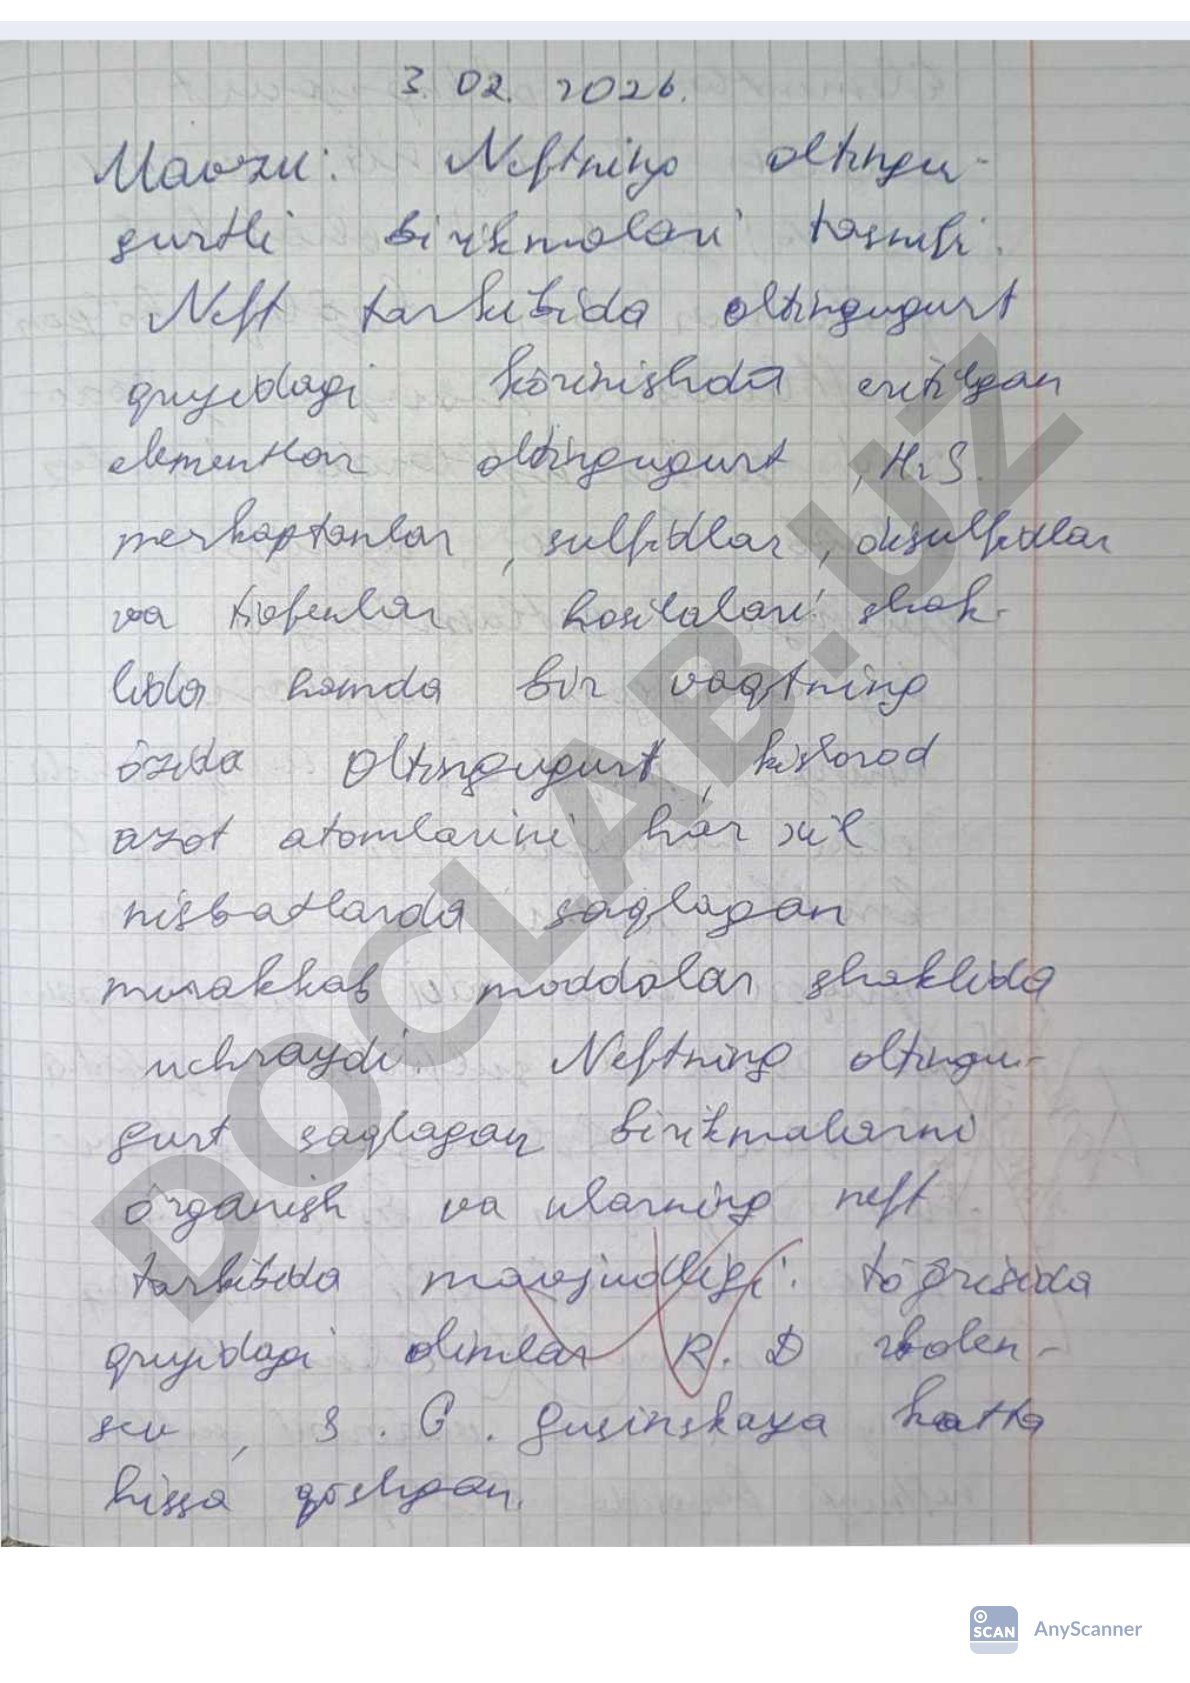 3. 02. 2026.
Mavzu: Neftning oltingu-
gurtli birikmalari tasnifi.
Neft tarkibida oltingugurt
quyidagi körinishda eritilgan
elementlar oltingugurt, H2S.
merkaptanlar, sulfidlar, disulfidlar
va tiofenlar hosilalari shak-
lida hamda bir vaqtning
özida oltingugurt, kislorod
azot atomlarini har xil
nisbatlarda saqlagan
murakkab moddalar shaklida
uchraydi. Neftning oltingu-
gurt saqlagan birikmalarni
örganish va ularning neft
tarkibida mavjudligi töğrisida
quyidagi olimlar R. D
, S. G. Gusinskaya katta
hissa qöshgan.
DOCLAB.UZ
SCAN AnyScanner